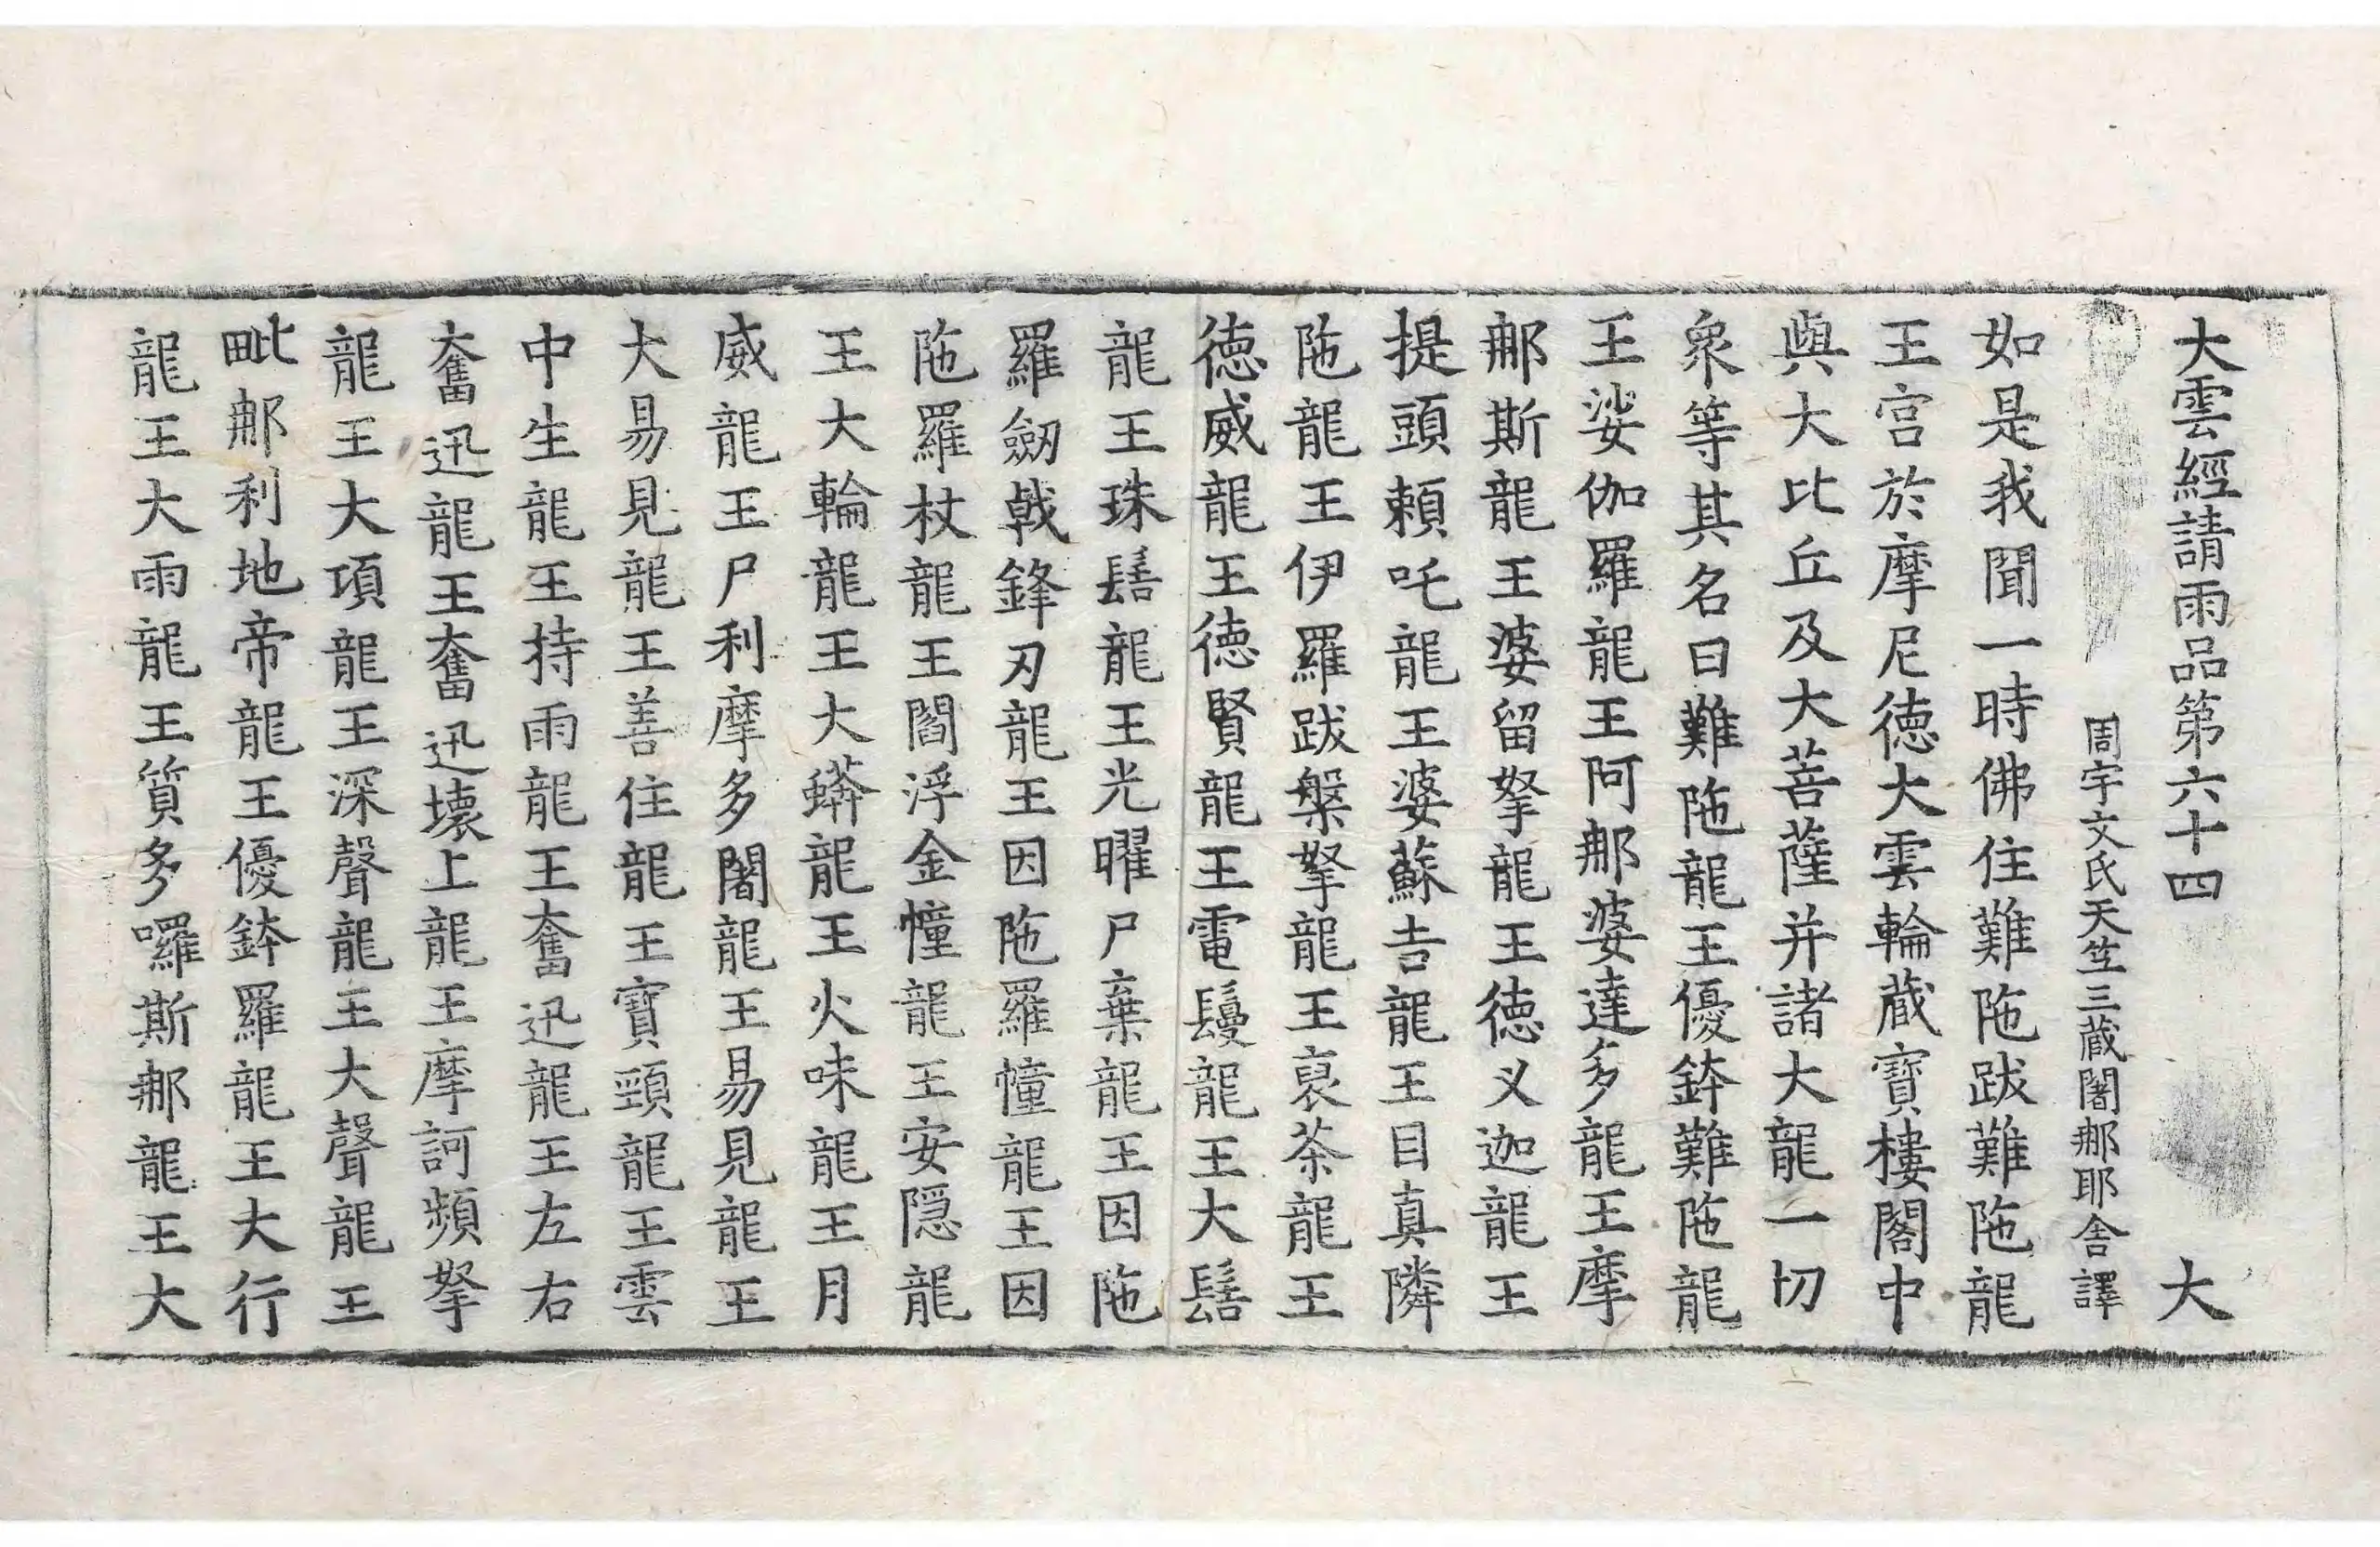 大雲經請雨品第六十四 大
周宇文氏天竺三藏闍那耶舍譯
如是我聞一時佛住難陁跋難陁龍
王宫於摩尼德大雲輪藏寶樓閣中
與大比丘及大菩薩并諸大龍一切
衆等其名曰難陁龍王優鉢難陁龍
王娑伽羅龍王阿那婆達多龍王摩
那斯龍王婆留拏龍王德义迦龍王
提頭賴吒龍王婆蘇吉龍王目真隣
陁龍王伊羅跋槃拏龍王裒茶龍王
德威龍王德賢龍王電鬘龍王大髻
龍王珠髻龍王光曜尸棄龍王因陁
羅劒戟鋒刃龍王因陁羅幢龍王因
陁羅杖龍王閻浮金幢龍王安隠龍
王大輪龍王大蟒龍王火味龍王月
威龍王尸利摩多闍龍王易見龍王
大易見龍王善住龍王寶頸龍王雲
中生龍王持雨龍王奮迅龍王左右
奮迅龍王奮迅壞上龍王摩訶頻拏
龍王大項龍王深聲龍王大聲龍王
毗那利地帝龍王優鉢羅龍王大行
龍王大雨龍王質多囉斯那龍王大